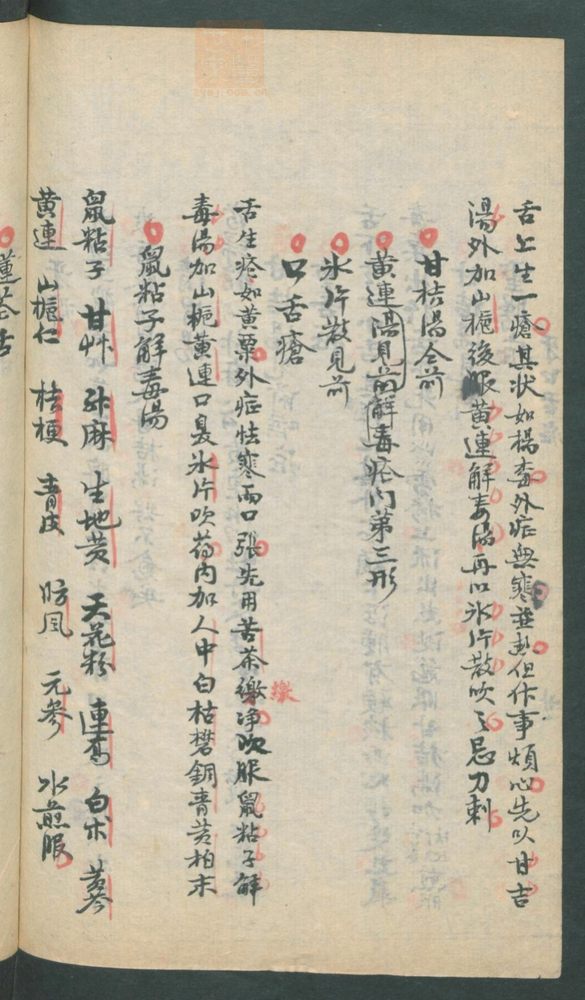 舌上生一瘡其状如楊梅外症無寒並熱但作事煩心先以甘吉
湯外加山梔後服黄連解毒湯再以氷片散吹之忌刀刺
甘桔湯仝前
黄連湯見前解毒疮门第三形
氷片散見前
口舌瘡
舌生疮如黄粟外症怯寒而口張先用苦茶繳净吹服鼠粘子解
繳
毒湯加山梔黄連口臭氷片吹药内加人中白枯礬銅青黄柏末
鼠粘子解毒湯
鼠粘子 甘艸 升麻 生地黄 天花粉 連翹 白朮 黄芩
黄連 山梔仁 桔梗 青皮 防風 元参 水煎服